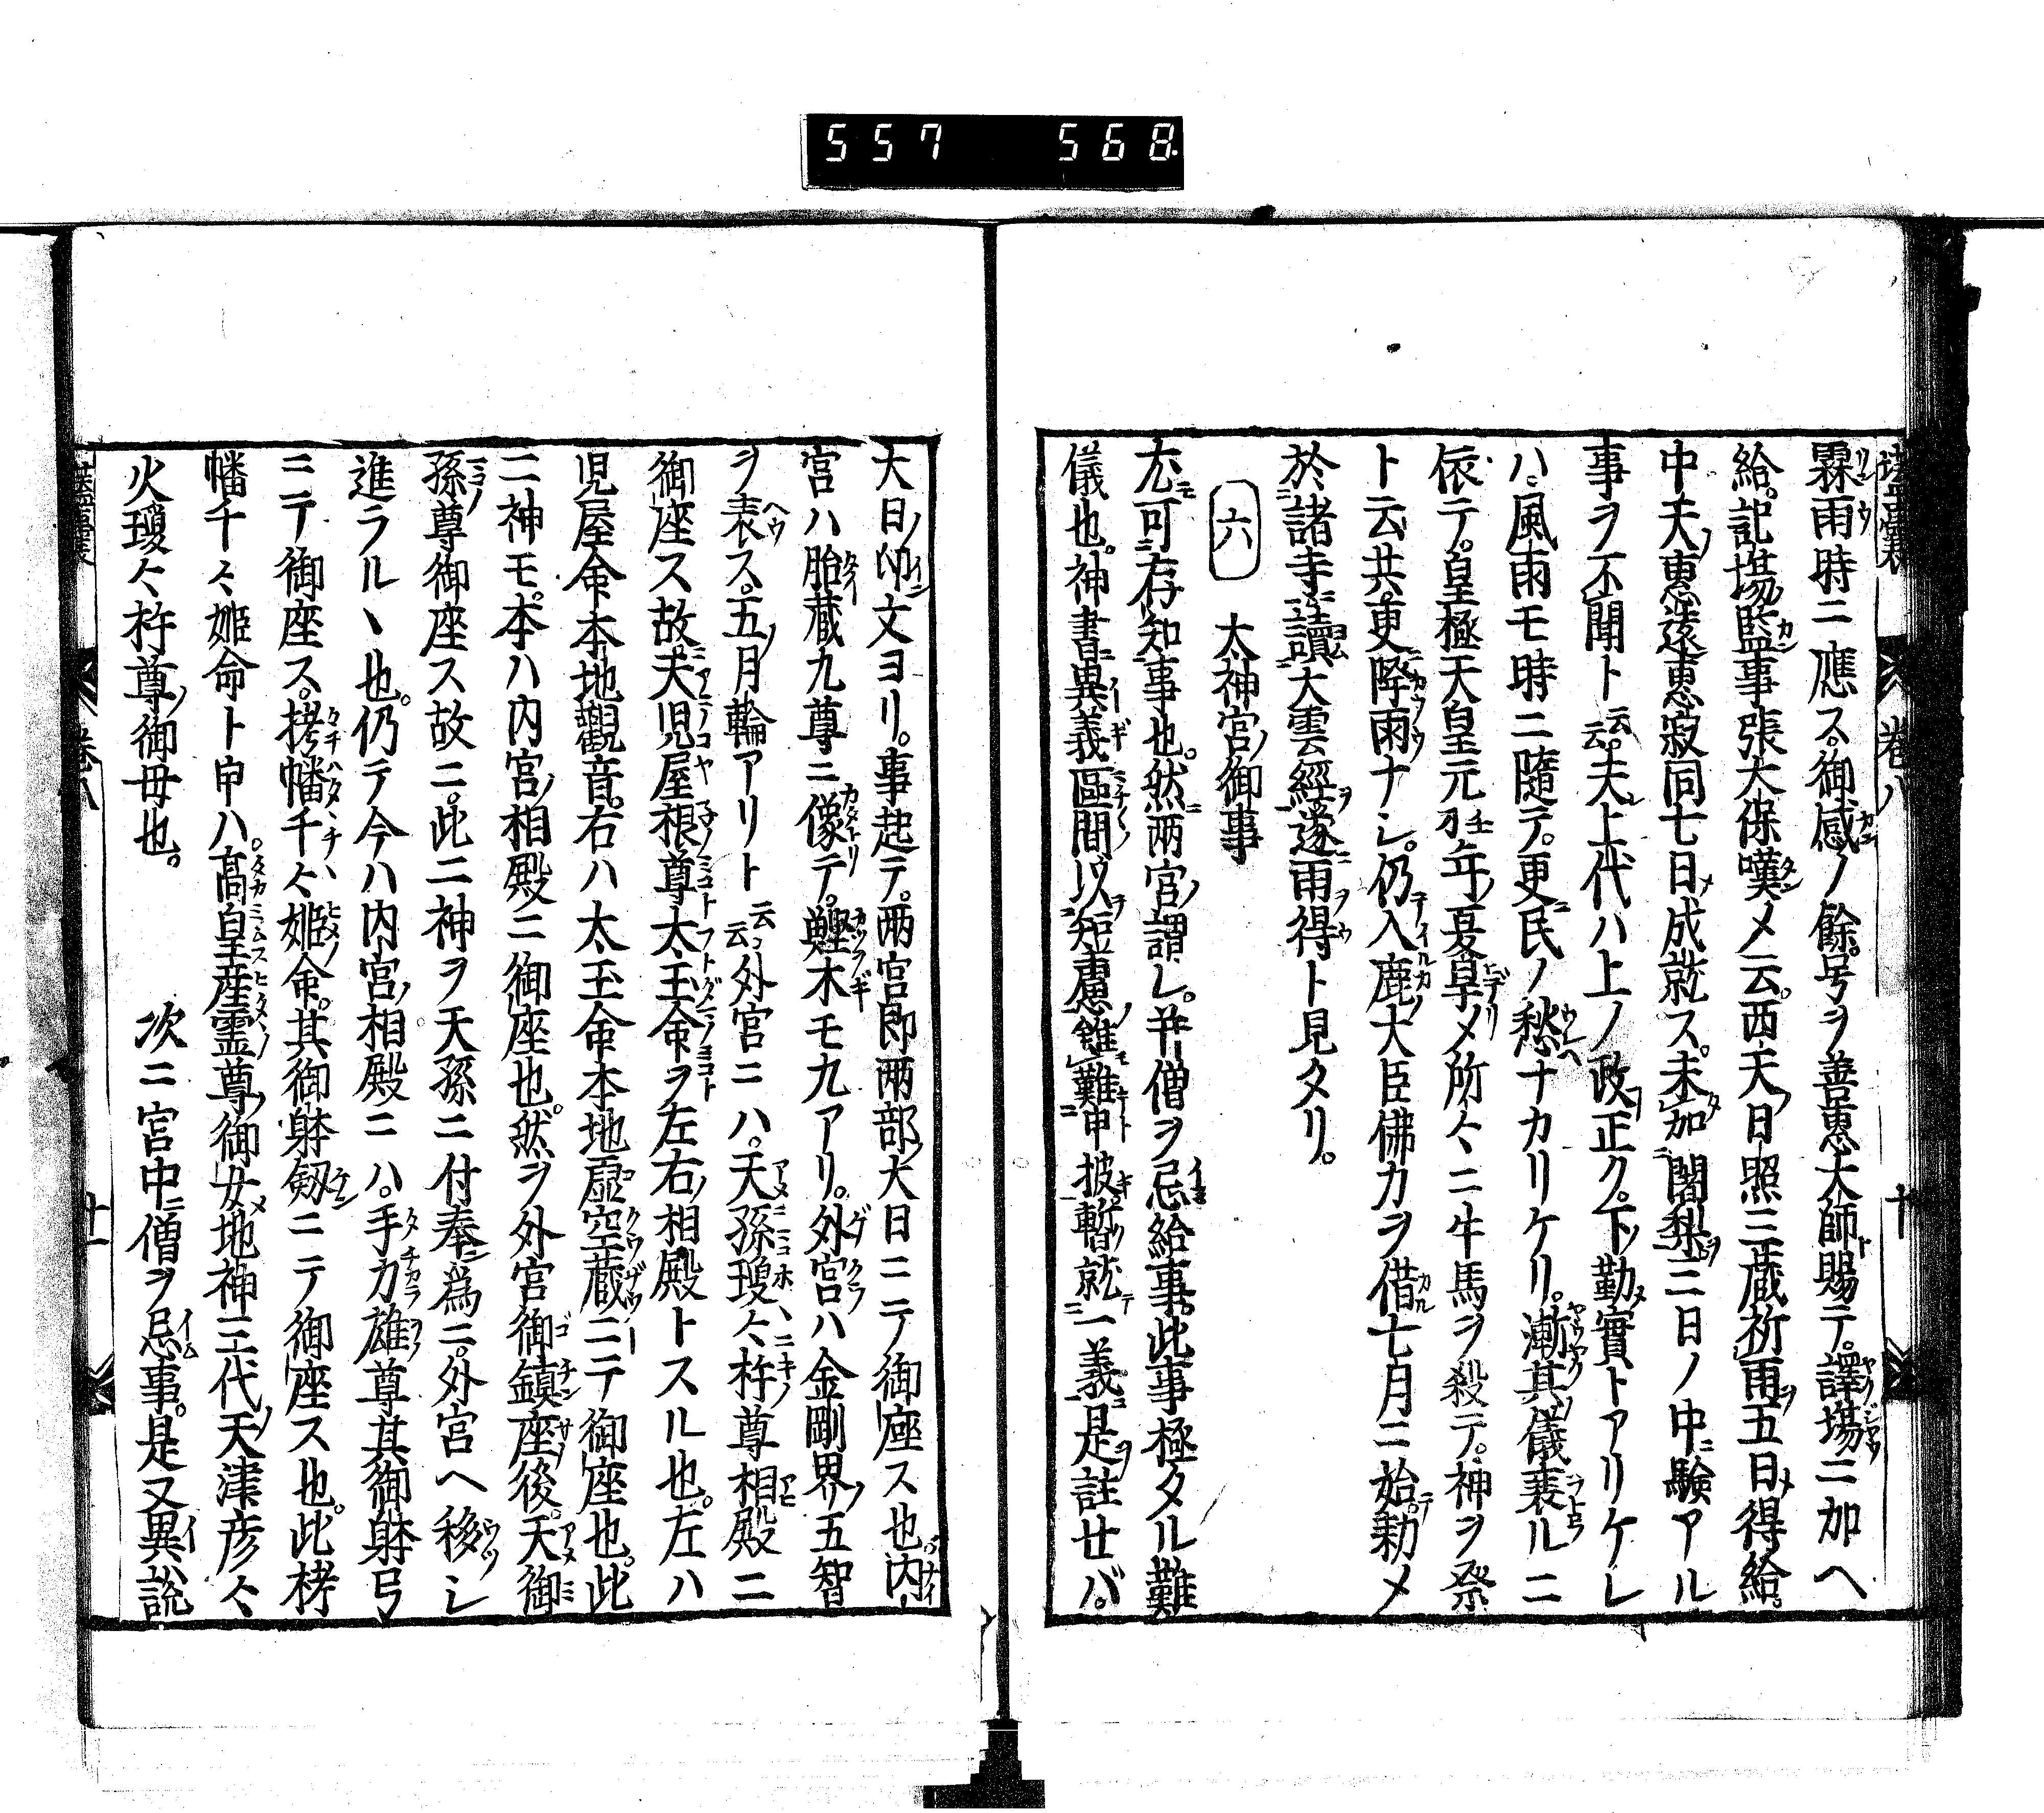 557 568
壒囊 卷八 十
霖雨時ニ應ス。御感ノ餘。号ヲ善惠大師ト賜テ。譯場ニ加ヘ
給。記場監事張大保嘆メ云。西天ノ日照三蔵祈雨ヲ五日メ得給。
中天ノ惠遠惠寂同七日メ成就ス。未加闍梨三日ノ中ニ験アル
事ヲ不聞ト云云。夫レ上代ハ上ノ政ヲ正ク。下ツ勤メ實トアリケレ
ハ風雨モ時ニ隨テ。更ニ民ノ愁ナカリケリ。漸其ノ儀衰ルニ
依テ。皇極天皇元年壬ノ夏旱メ所々ニ牛馬ヲ殺テ。神ヲ祭
ト云共。更ニ降雨ナシ。仍テ入鹿ノ大臣佛力ヲ借七月ニ始テ勅メ
於諸寺ニ讀大雲經ヲ遂ニ雨ヲ得ト見タリ。
六 太神宮ノ御事
尤モ可存知事也。然ニ兩宮ノ謂レ。并僧ヲ忌給事。此事極タル難
儀也。神書ニ異義區ノ間以短慮ヲ雖難申披暫就一義ニ是ヲ註廿バ。
大日ノ印文ヨリ。事起テ。兩宮即兩部ノ大日ニテ御座ス也。内
宮ハ胎蔵九尊ニ像テ。鰹木モ九アリ。外宮ハ金剛界ノ五智
ヲ表ス。五ノ月輪アリト云云。外宮ニハ。天孫瓊々杵尊相殿ニ
御座ス故ニ。天児屋根尊太玉命ヲ左右ノ相殿トスル也。左ハ
児屋命本地觀音。右ハ太玉命本地虚空蔵ニテ御座也。此
二神モ。本ハ内宮ノ相殿ニ御座也。然ヲ外宮御鎮座ノ後。天御
孫ノ尊御座ス故ニ。此二神ヲ天孫ニ付奉ン為ニ。外宮ヘ移シ
進ラルヽ也。仍テ今ハ内宮ノ相殿ニハ。手力雄ノ尊其御躰弓
ニテ御座ス。栲幡千々姫ノ命。其御躰剱ニテ御座ス也。此栲
幡千々姫命ト申ハ。高皇産霊尊ノ御女地神三代天ノ津彦々
火瓊々杵尊ノ御母也。 次ニ宮中ニ僧ヲ忌事。是又異説
卷八 廿一